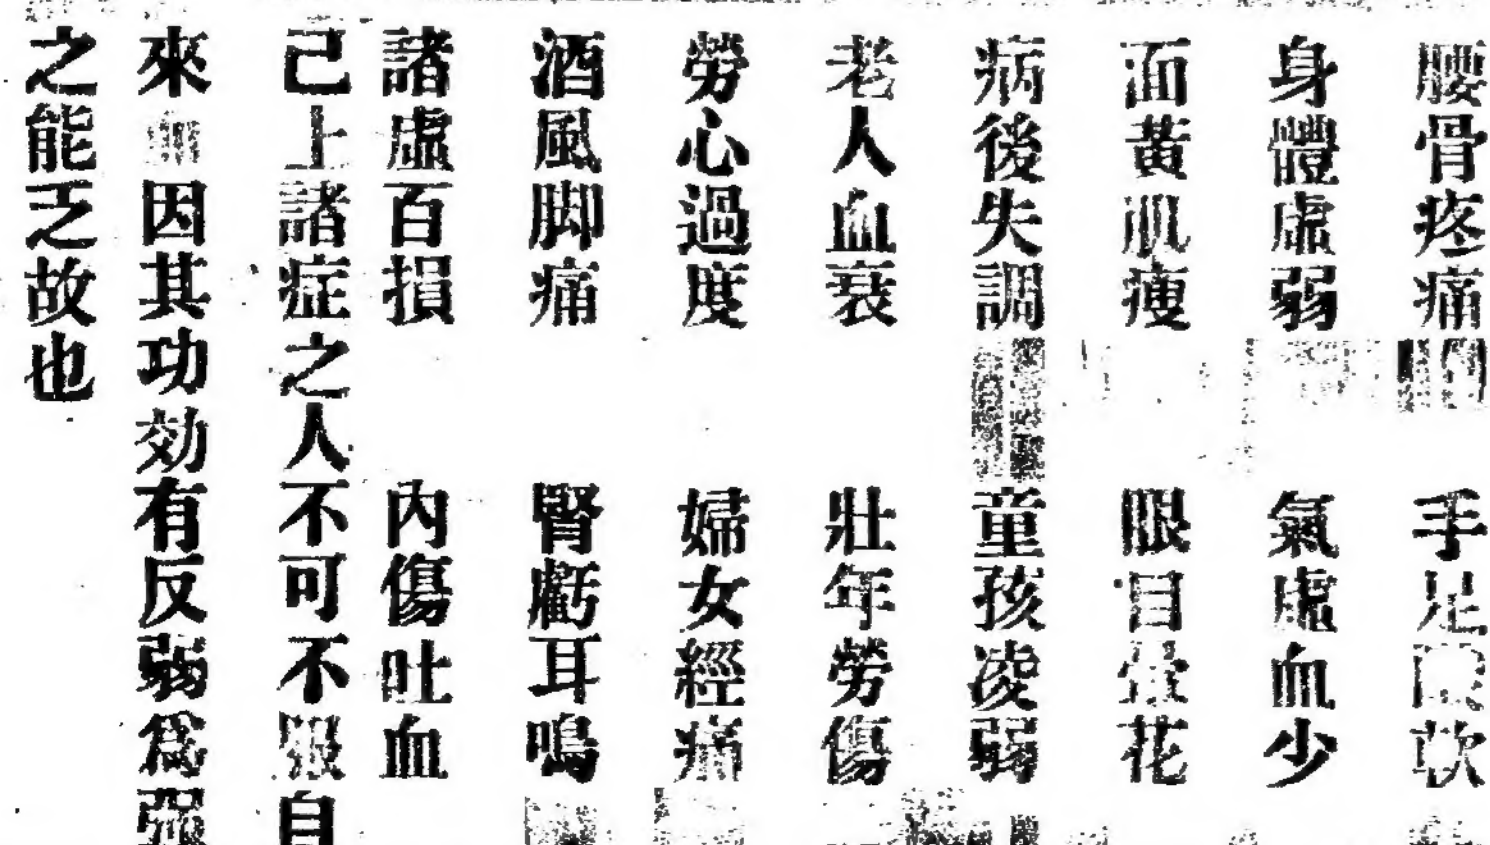 腰骨疼痛 手足酸軟
身體虛弱 氣虛血少
面黃肌瘦 眼目暈花
病後失調 童孩凌弱
老人血衰 壯年勞傷
勞心過度 婦女經痛
酒風脚痛 腎虧耳鳴
諸虛百損 內傷吐血
己上諸症之人不可不服自
來血因其功効有反弱爲強
之能乏故也